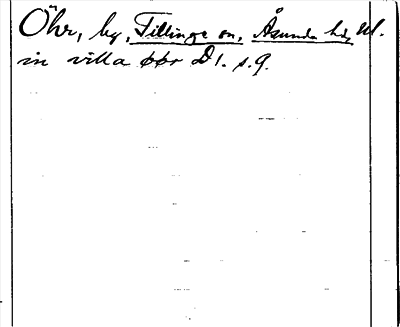 Öhr, by, Tillinge sn, Åsunda hd, Ul.
in villa øør D1. s.9.